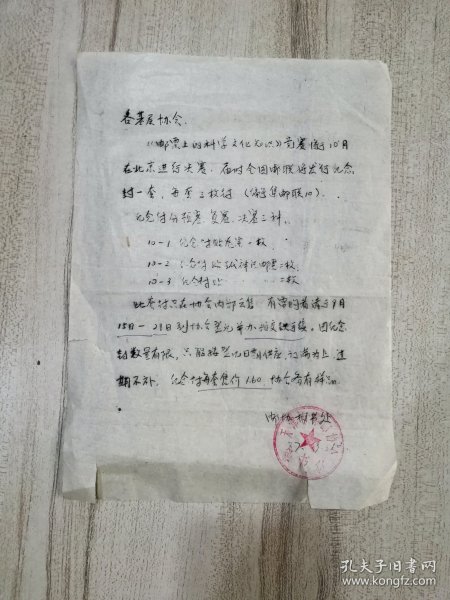 各基层协会:
《邮票上的科学文化知识》竞赛将于10月
在北京进行决赛,届时全国邮联将发行纪念
封一套,每套三枚封(编号集邮联10)。
纪念封分预赛、复赛、决赛三种。
10-1 纪念封贴 票一枚,
10-2 纪念封贴 邮票二枚,
10-3 纪念封贴 二枚
此套封只在协会内部出售,有需要的者请于9月
15日-29日到协会登记并办 交款手续,因纪念
封数量有限,只能按登记日期供应,订满为止,过
期不补。纪念封每套售价1.60 协会备有样品。
市协秘书处
孔夫子旧书网
www.kongfz.com